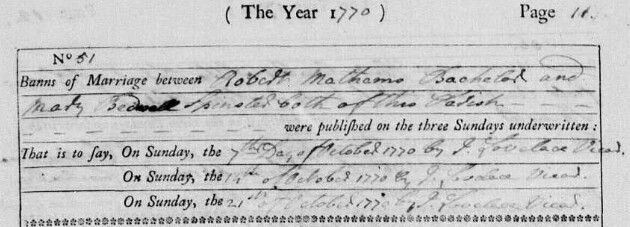 ( The Year 1770 ) Page 11.
No 51
Banns of Marriage between Robert Mathams Bachelor and
Mary Bedwell Spinster both of this Parish
were published on the three Sundays underwritten :
That is to say, On Sunday, the 7th Day of October 1770 by J. Lovelace Vicar.
On Sunday, the 14th of October 1770 by J. Lovelace Vicar.
On Sunday, the 21st of October 1770 by J. Lovelace Vicar.